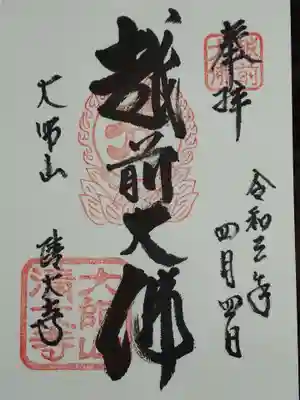 奉拝
令和三年
四月四日
越前大佛
大師山
清大寺
越前大佛
大師山
清大寺